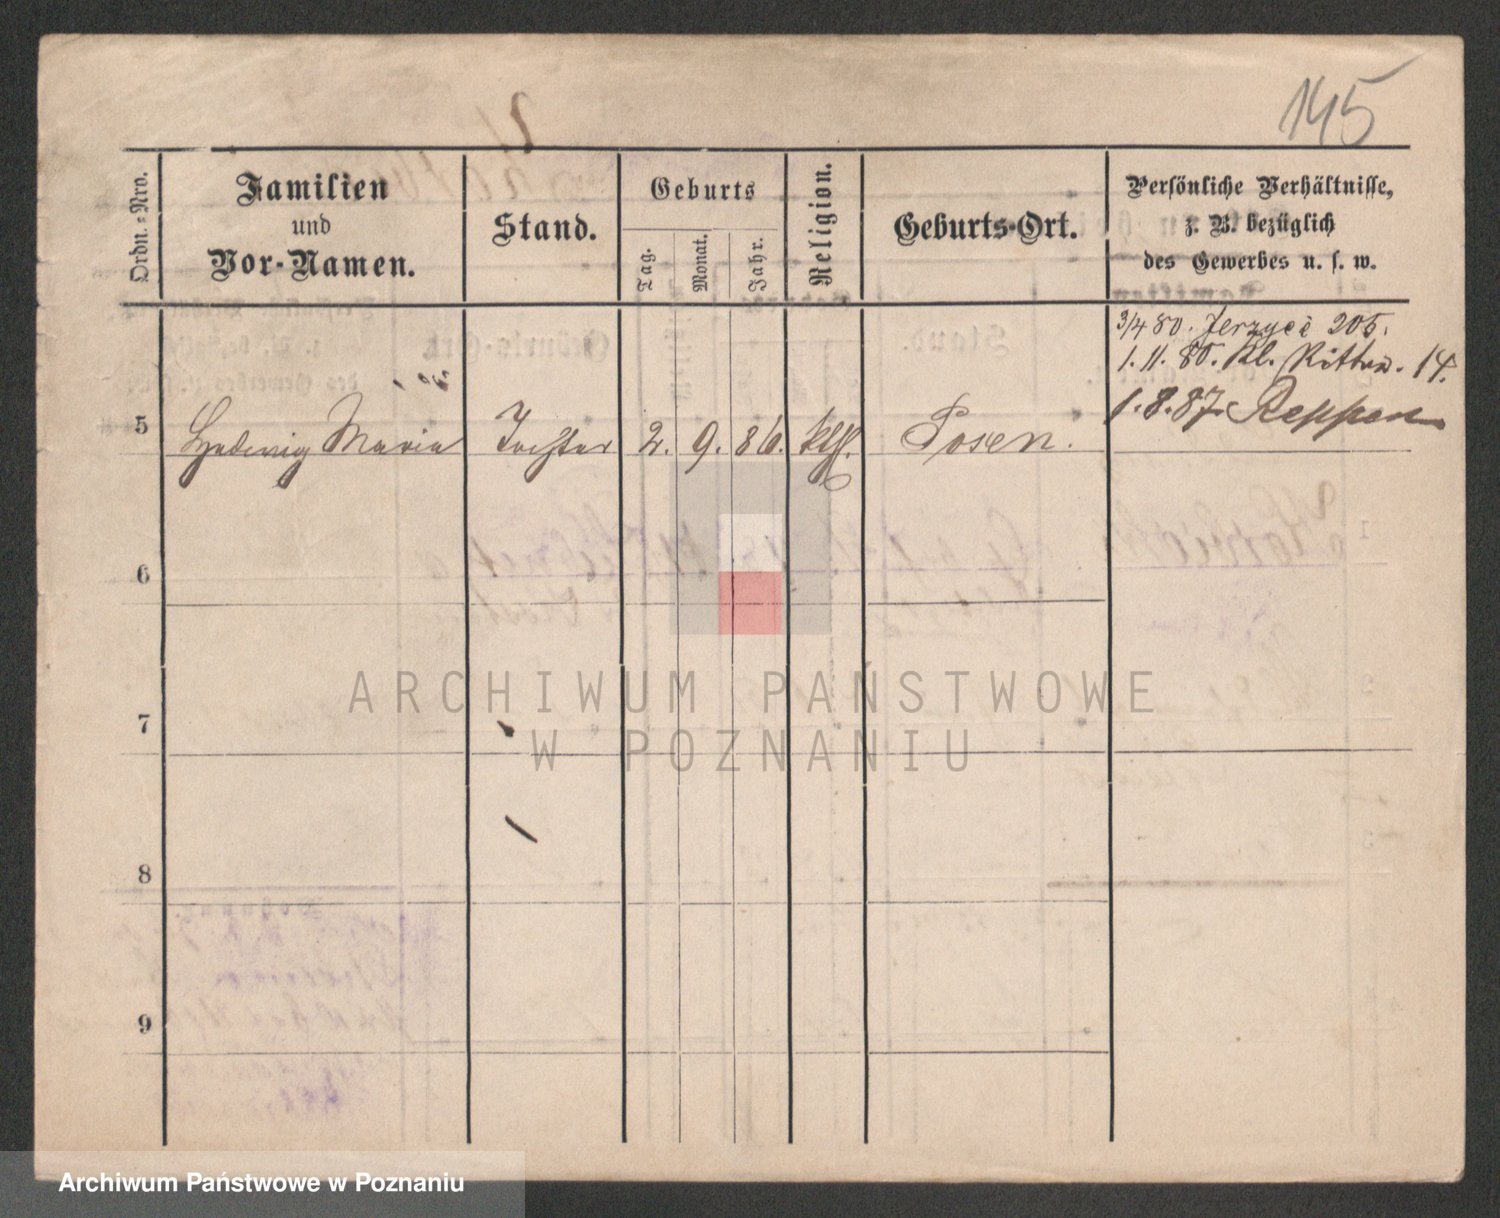 145
Ordn.-Nro.
Familien
und
Vor-Namen.
Stand.
Geburts
Tag.
Monat.
Jahr.
Religion.
Geburts-Ort.
Persönliche Verhältnisse,
z. B. bezüglich
des Gewerbes u. s. w.
3/4 80. Jerzyce 205.
1. 11. 80. Kl. Ritter. 14.
1. 8. 87. Reppen
5 Hedwig Maria Tochter 2. 9. 86. kth. Posen.
6
7
8
9
ARCHIWUM PAŃSTWOWE
W POZNANIU
Archiwum Państwowe w Poznaniu